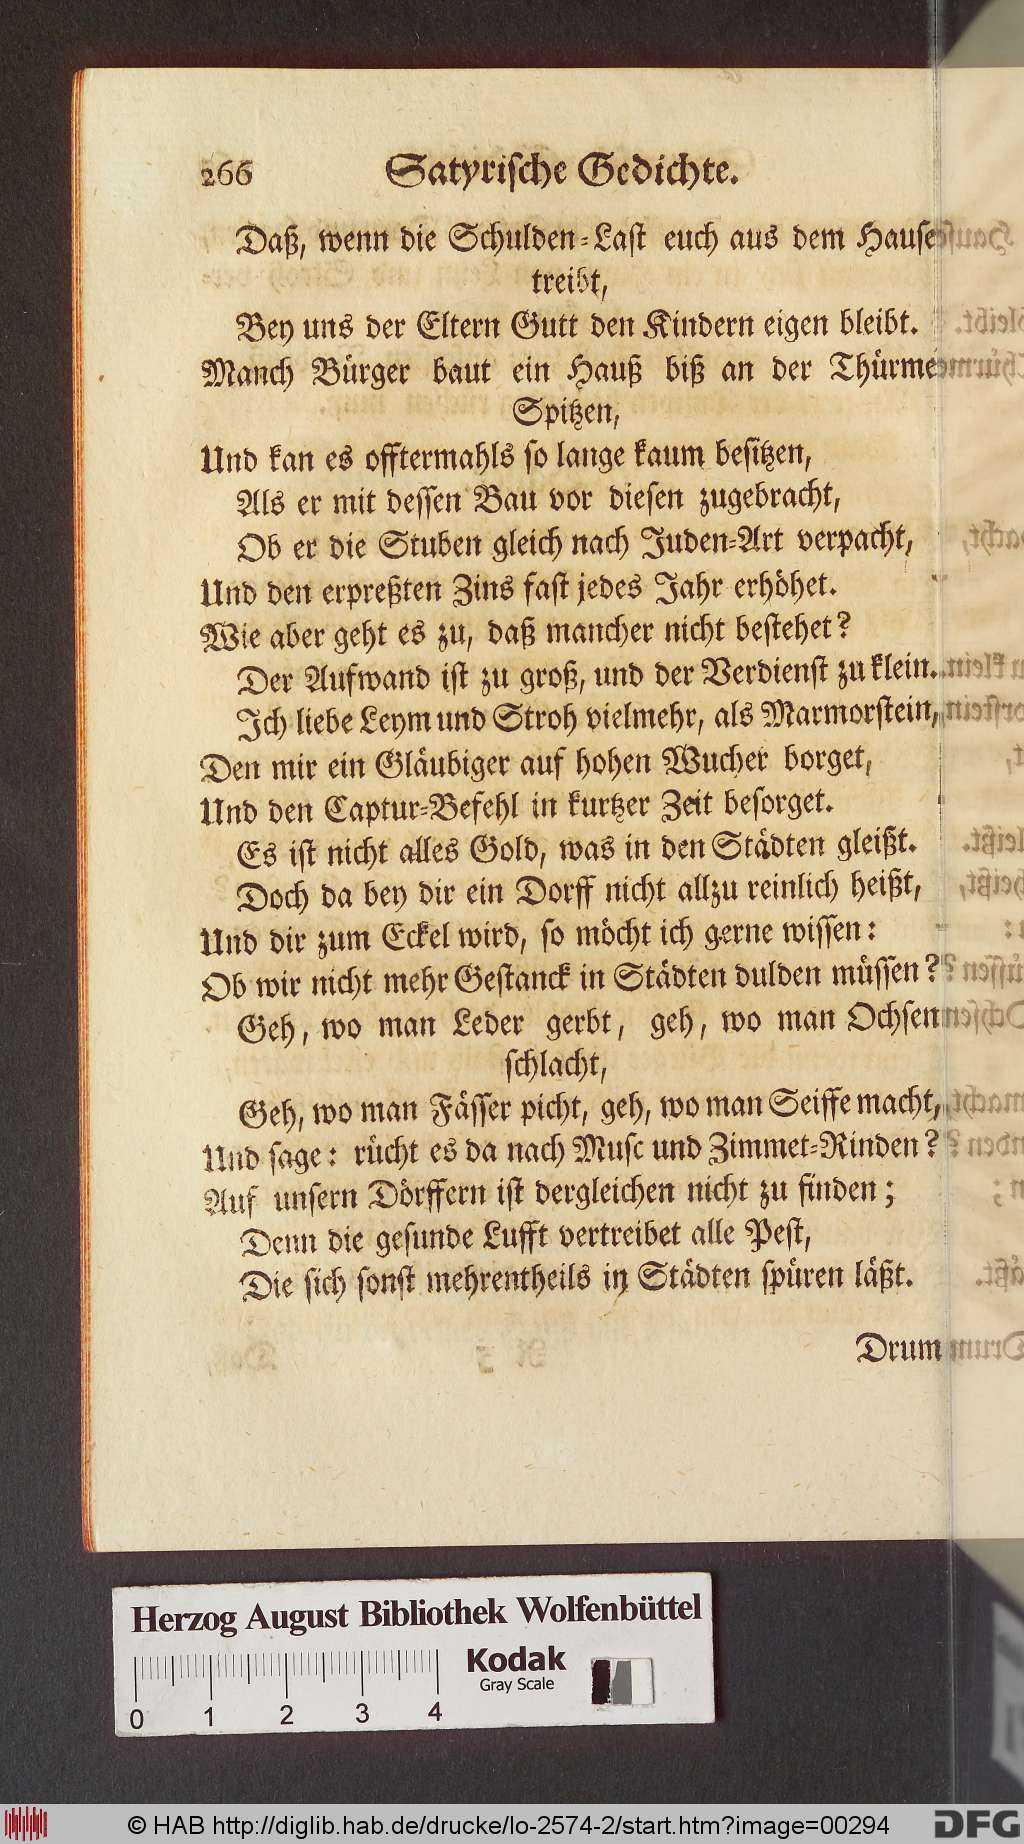 266 Satyrische Gedichte.
Daß, wenn die Schulden-Last euch aus dem Hause
treibt,
Bey uns der Eltern Gutt den Kindern eigen bleibt.
Manch Bürger baut ein Hauß biß an der Thürme
Spitzen,
Und kan es offtermahls so lange kaum besitzen,
Als er mit dessen Bau vor diesen zugebracht,
Ob er die Stuben gleich nach Juden-Art verpacht,
Und den erpreßten Zins fast jedes Jahr erhöhet.
Wie aber geht es zu, daß mancher nicht bestehet?
Der Aufwand ist zu groß, und der Verdienst zu klein.
Ich liebe Leym und Stroh vielmehr, als Marmorstein,
Den mir ein Gläubiger auf hohen Wucher borget,
Und den Captur-Befehl in kurtzer Zeit besorget.
Es ist nicht alles Gold, was in den Städten gleißt.
Doch da bey dir ein Dorff nicht allzu reinlich heißt,
Und dir zum Eckel wird, so möcht ich gerne wissen:
Ob wir nicht mehr Gestanck in Städten dulden müssen?
Geh, wo man Leder gerbt, geh, wo man Ochsen
schlacht,
Geh, wo man Fässer picht, geh, wo man Seiffe macht,
Und sage: rücht es da nach Musc und Zimmet-Rinden?
Auf unsern Dörffern ist dergleichen nicht zu finden;
Denn die gesunde Lufft vertreibet alle Pest,
Die sich sonst mehrentheils in Städten spüren läßt.
Drum
Herzog August Bibliothek Wolfenbüttel
Kodak
Gray Scale
0 1 2 3 4
© HAB http://diglib.hab.de/drucke/lo-2574-2/start.htm?image=00294
DFG